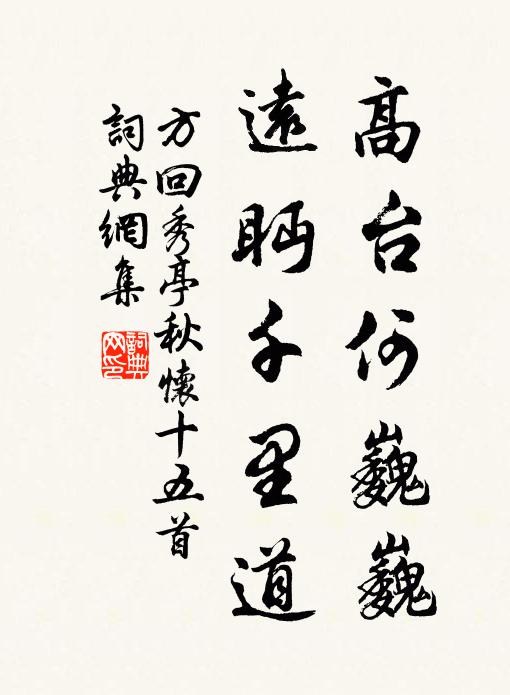 高台何巍巍
遠眄千里道
方回秀亭秋懷十五首
詞典網集
詞典網印